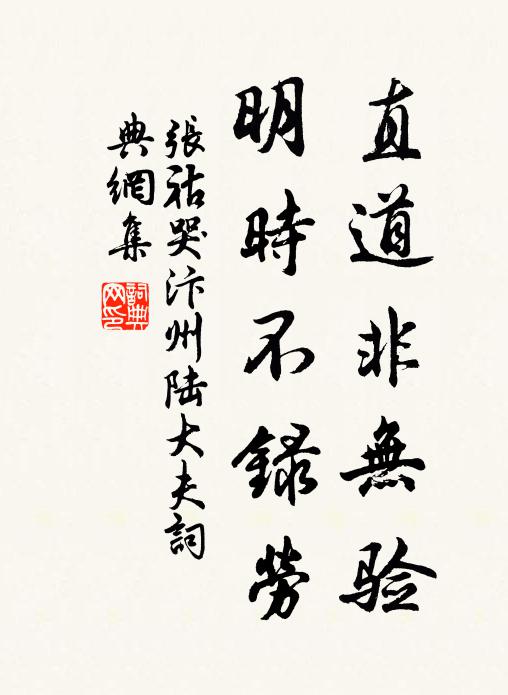 直道非無验
明時不録勞
張祜哭汴州陆大夫詞
典網集
詞典网印